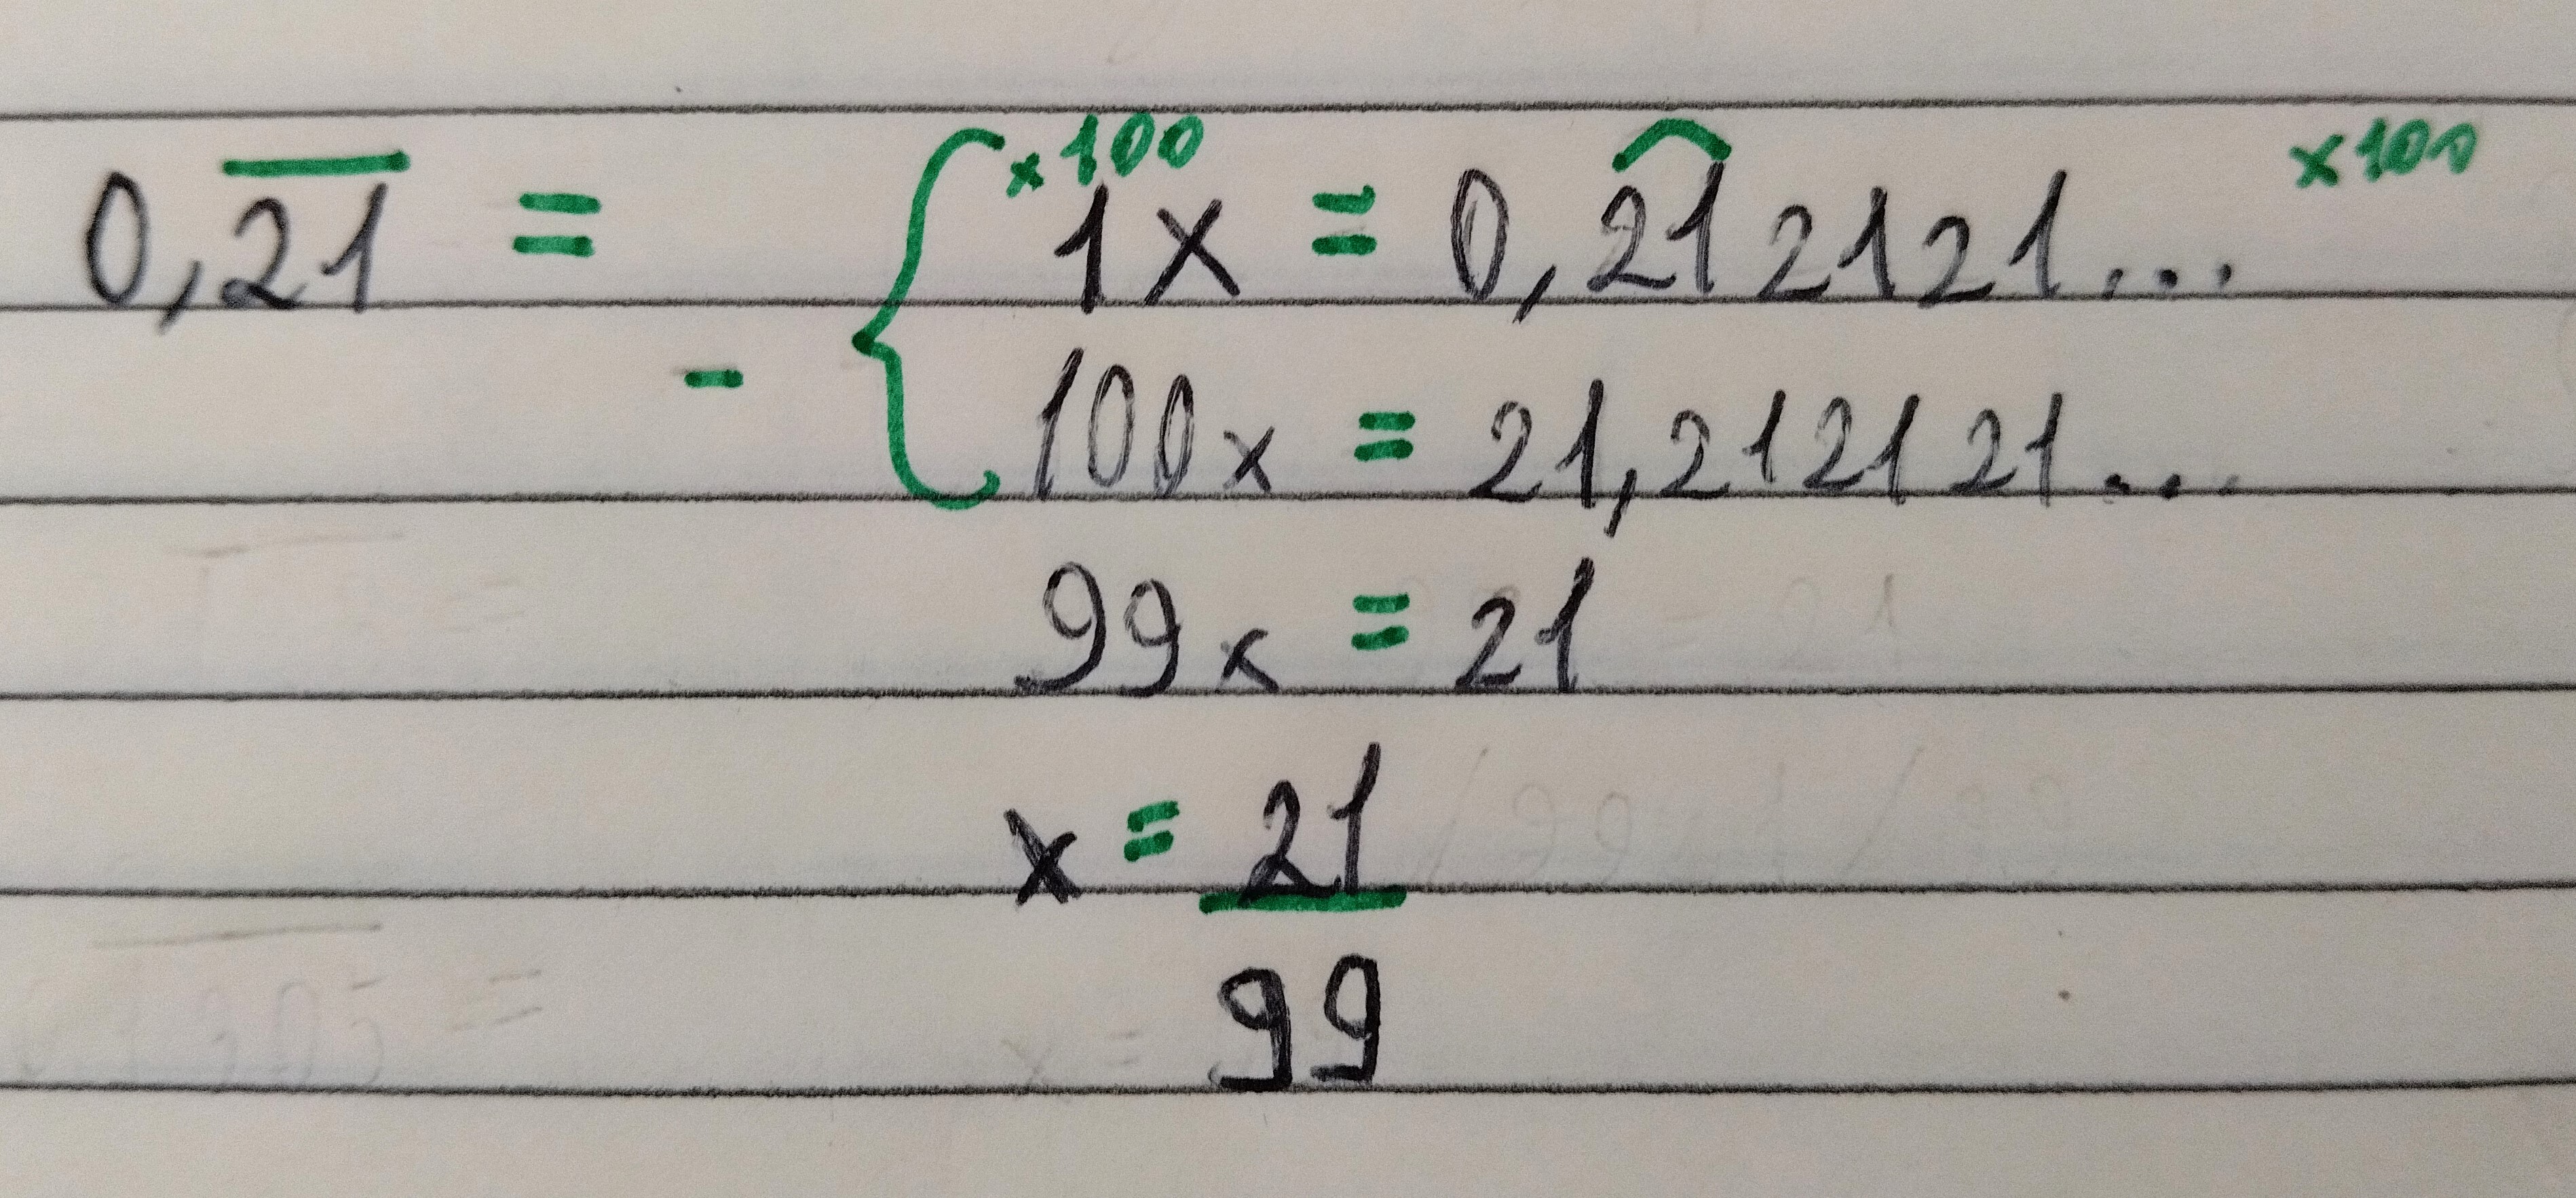 0,2̅1̅ = ×100 1x = 0,212121... ×100
- 100x = 21,212121...
99x = 21
x = 21
99